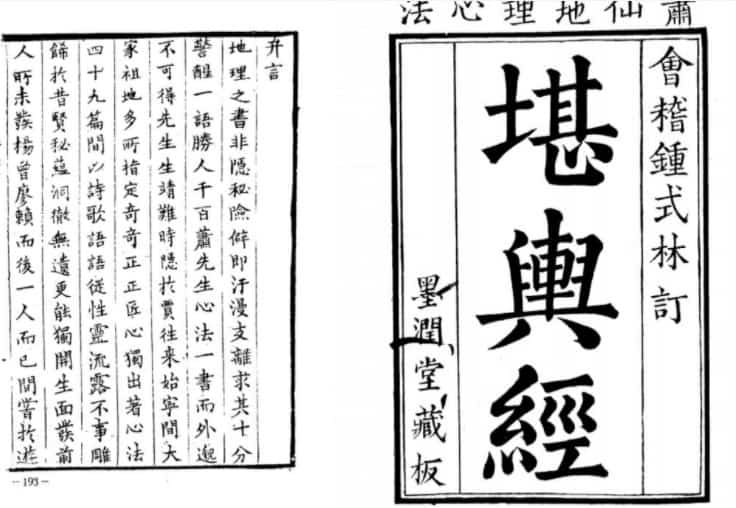 蕭仙地理心法
會稽鍾式林訂
堪輿經
墨潤堂藏板
弁言
地理之書非隱秘險僻即汗漫支離求其十分
警醒一語勝人千百蕭先生心法一書而外邈
不可得先生生靖難時隱於賈往来始寧間大
家祖地多所指定奇奇正正匠心獨出著心法
四十九篇間以詩歌語語從性靈流露不事雕
餙於昔賢秘蘊洞徹無遺更能獨開生面發前
人所未發楊曾廖賴而後一人而已間嘗於遊
-193-